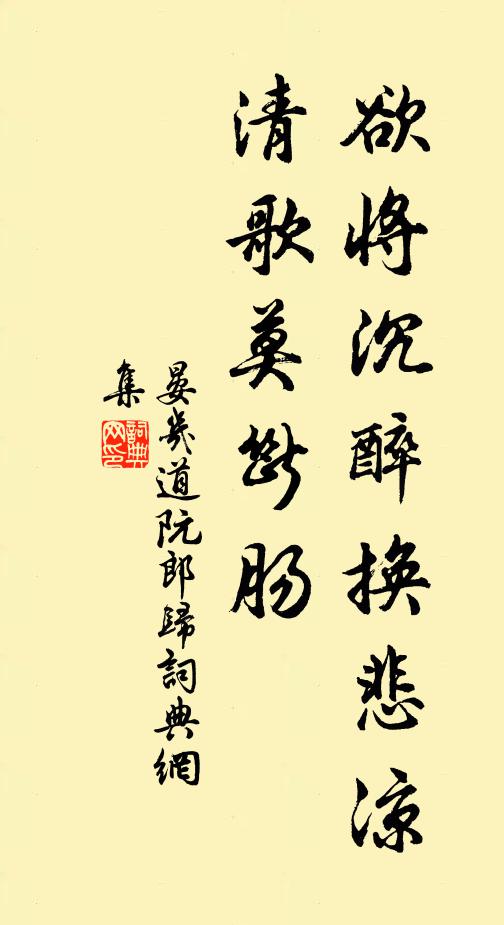 欲將沉醉換悲涼
清歌莫斷腸
晏幾道阮郎歸詞典網
集
詞典
网印